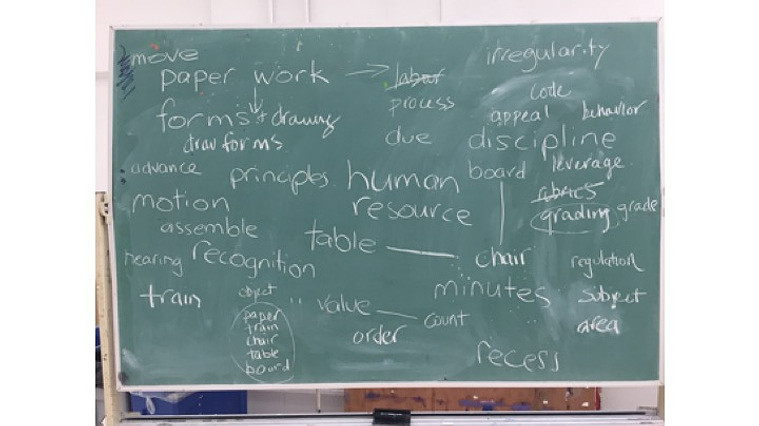 move
irregularity
paper work
labor
code
process
appeal
behavior
forms + drawing
draw forms
due
discipline
advance
principles
human
board
leverage
motion
resource
grading
grade
assemble
table
chair
regulation
hearing
recognition
train
object
value
minutes
subject
paper
train
chair
table
board
count
area
order
recess